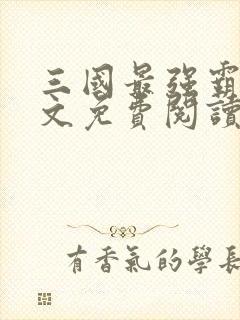 三國最強霸
文免費閱讀
有香氣的學長